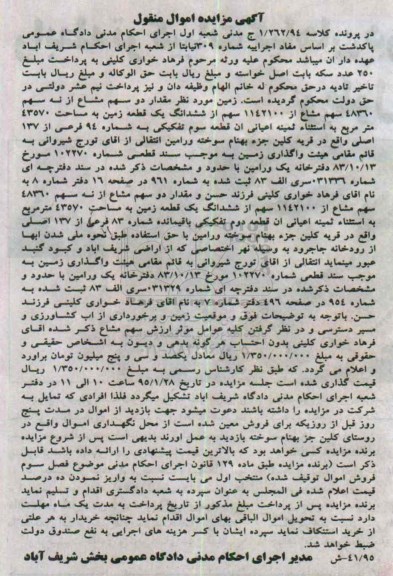 آگهی مزایده اموال منقول
در پرونده کلاسه ۲۶۲/۹۴/۱ ج مدنی شعبه اول اجرای احکام مدنی دادگاه عمومی
پاکدشت بر اساس مفاد اجراییه شماره ۳۰۹ نیابتا از شعبه اجرای احکام شریف آباد
عهده دار آن میباشد محکوم علیه ورثه مرحوم فرهاد خواری کلینی به پرداخت مبلغ
۲۵۰ عدد سکه بابت اصل خواسته و مبلغ ریال بابت حق الوکاله و مبلغ ریال بابت
تاخیر تادیه درحق محکوم له خانم الهام وظیفه دان و نیز پرداخت نیم عشر دولتی در
حق دولت محکوم گردیده است. زمین مورد نظر مقدار دو سهم مشاع از نه سهم
۴۸۳۶۰ سهم مشاع از ۱۱۴۲۱۰۰ سهم از ششدانگ یک قطعه زمین به مساحت ۴۳۵۷۰
متر مربع به استثناء ثمنیه اعیانی آن قطعه سوم تفکیکی به شماره ۹۴ فرعی از ۱۳۷
اصلی واقع در قریه کلین جزء بهنام سوخته ورامین انتقالی از اقای تورج شیروانی به
قائم مقامی هیئت واگذاری زمین به موجب سند قطعی شماره ۱۰۲۲۷۰ مورخ
۸۳/۱۰/۱۳ دفترخانه یک ورامین با حدود و مشخصات ذکر شده در سند دفترچه ای
شماره ۰۳۱۳۳۶ سری الف ۸۳ ثبت شده به شماره ۹۶۱ در صفحه ۱۶ دفتر شماره ۸ به
نام اقای فرهاد خواری کلینی فرزند حسن و مقدار دو سهم مشاع از نه سهم ۴۸۳۶۰
سهم مشاع از ۱۱۴۲۱۰۰ سهم از ششدانگ یک قطعه زمین به مساحت ۴۳۵۷۰ مترمربع
به استثناء ثمنیه اعیانی آن قطعه دوم تفکیکی باقیمانده شماره ۸۳ فرعی از ۱۳۷ اصلی
واقع در قریه کلین جزء بهنام سوخته ورامین با حق استفاده طبق نحوه ملی شدن آبها
از رودخانه جاجرود به وسیله نهر اختصاصی که از اراضی شریف آباد و کبود گنبد
عبور مینماید انتقالی از اقای تورج شیروانی به قائم مقامی هیئت واگذاری زمین به
موجب سند قطعی شماره ۱۰۲۲۷۰ مورخ ۸۳/۱۰/۱۳ دفترخانه یک ورامین با حدود و
مشخصات ذکرشده در سند دفترچه ای شماره ۰۳۱۳۲۹ سری الف ۸۳ ثبت شده به
شماره ۹۵۴ در صفحه ۴۹۶ دفتر شماره ۷ به نام اقای فرهاد خواری کلینی فرزند
حسن. باتوجه به توضیحات فوق و موقعیت زمین و برخورداری از آب کشاورزی و
مسیر دسترسی و در نظر گرفتن کلیه عوامل موثر ارزش سهم مشاع ذکر شده اقای
فرهاد خواری کلینی بدون احتساب هر گونه بدهی و دیون به اشخاص حقیقی و
حقوقی به مبلغ ۱/۳۵۰/۰۰۰/۰۰۰ ریال معادل یکصد و سی و پنج میلیون تومان براورد
و اعلام می گردد. که طبق نظر کارشناس رسمی به مبلغ ۱/۳۵۰/۰۰۰/۰۰۰ ریال
قیمت گذاری شده است جلسه مزایده در تاریخ ۹۵/۱/۲۸ ساعت ۱۰ الی ۱۱ در دفتر
شعبه اجرای احکام مدنی دادگاه شریف آباد تشکیل میگردد فلذا افرادی که تمایل به
شرکت در مزایده را داشته باشند دعوت میشود جهت بازدید از اموال در مدت پنج
روز قبل از روزیکه برای فروش معین شده است از محل نگهداری اموال واقع در
روستای کلین جز بهنام سوخته بازدید به عمل آورند بدیهی است پس از شروع مزایده
برنده مزایده کسی خواهد بود که بالاترین قیمت پیشنهادی را ارائه داده باشد قابل
ذکر است (برنده مزایده طبق ماده ۱۲۹ قانون اجرای احکام مدنی موضوع فصل سوم
فروش اموال توقیف شده) منتخب اول می بایست نسبت به واریز نمودن ده درصد
قیمت اعلام شده فی المجلس به عنوان سپرده به شعبه دادگستری اقدام و تسلیم نماید
برنده مزایده پس از پرداخت مبلغ مذکور از تاریخ پرداخت به مدت یک ماه مهلت
دارد نسبت به تحویل اموال الباقی بهای اموال اقدام نماید چنانچه خریدار به هر علتی
از خرید استنکاف نماید سپرده ایشان با کسر هزینه های اجرایی به نفع صندوق دولت
ضبط خواهد شد.
۴۱/۹۵-ش مدیر اجرای احکام مدنی دادگاه عمومی بخش شریف آباد